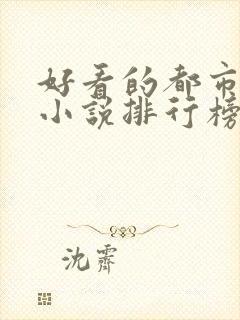 好看的都市
小说排行榜
沈霁